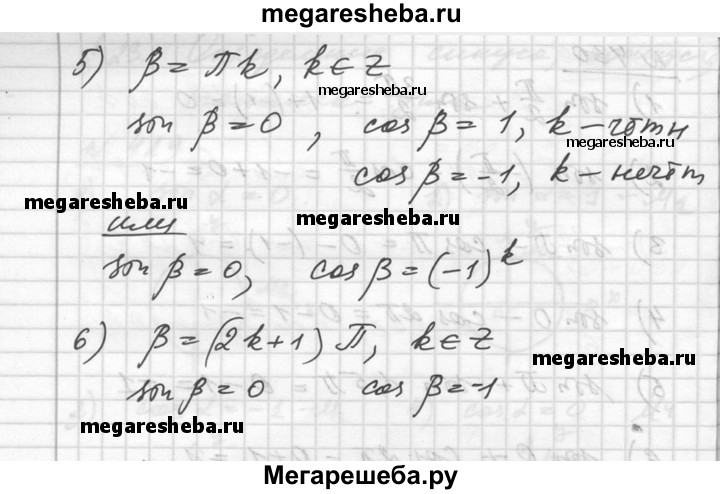 megaresheba.ru
5) β = πk, k ∈ Z
megaresheba.ru
sin β = 0, cos β = 1, k – чётн
megaresheba.ru megaresheba.ru
cos β = -1, k – нечётн
megaresheba.ru megaresheba.ru
или
sin β = 0, cos β = (-1)^k
6) β = (2k+1)π, k ∈ Z
megaresheba.ru
sin β = 0 cos β = -1
megaresheba.ru megaresheba.ru
Мегарешеба.ру